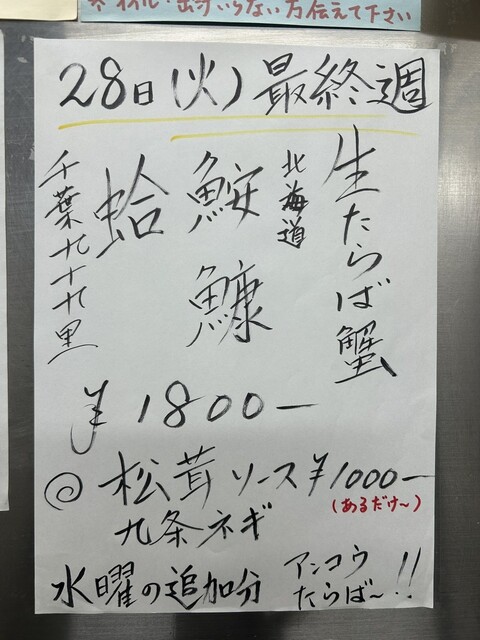 ※オイル・出すいらない方伝えて下さい
28日(火)最終週
生たらば蟹
北海道
鮟鱇
蛤
千葉九十九里
¥1800ー
◎松茸ソース¥1000ー
(あるだけ〜)
九条ネギ
水曜の追加分
アンコウ
たらば〜!!